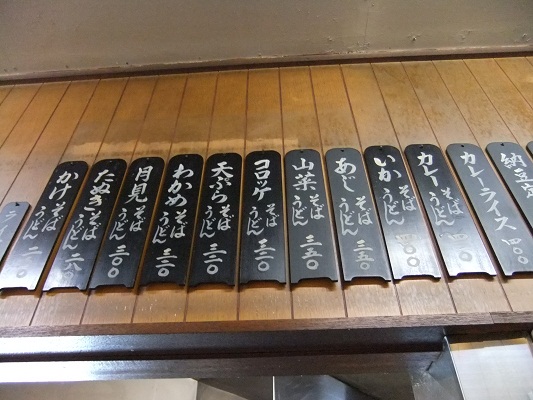 ライ
かけそばうどん
たぬきそばうどん 二八〇
月見そばうどん 三〇〇
わかめそばうどん 三二〇
天ぷらそばうどん 三二〇
コロッケそばうどん 三二〇
山菜そばうどん 三五〇
あじそばうどん 三五〇
いかそばうどん 四〇〇
カレーそばうどん
カレーライス 四〇〇
納豆定